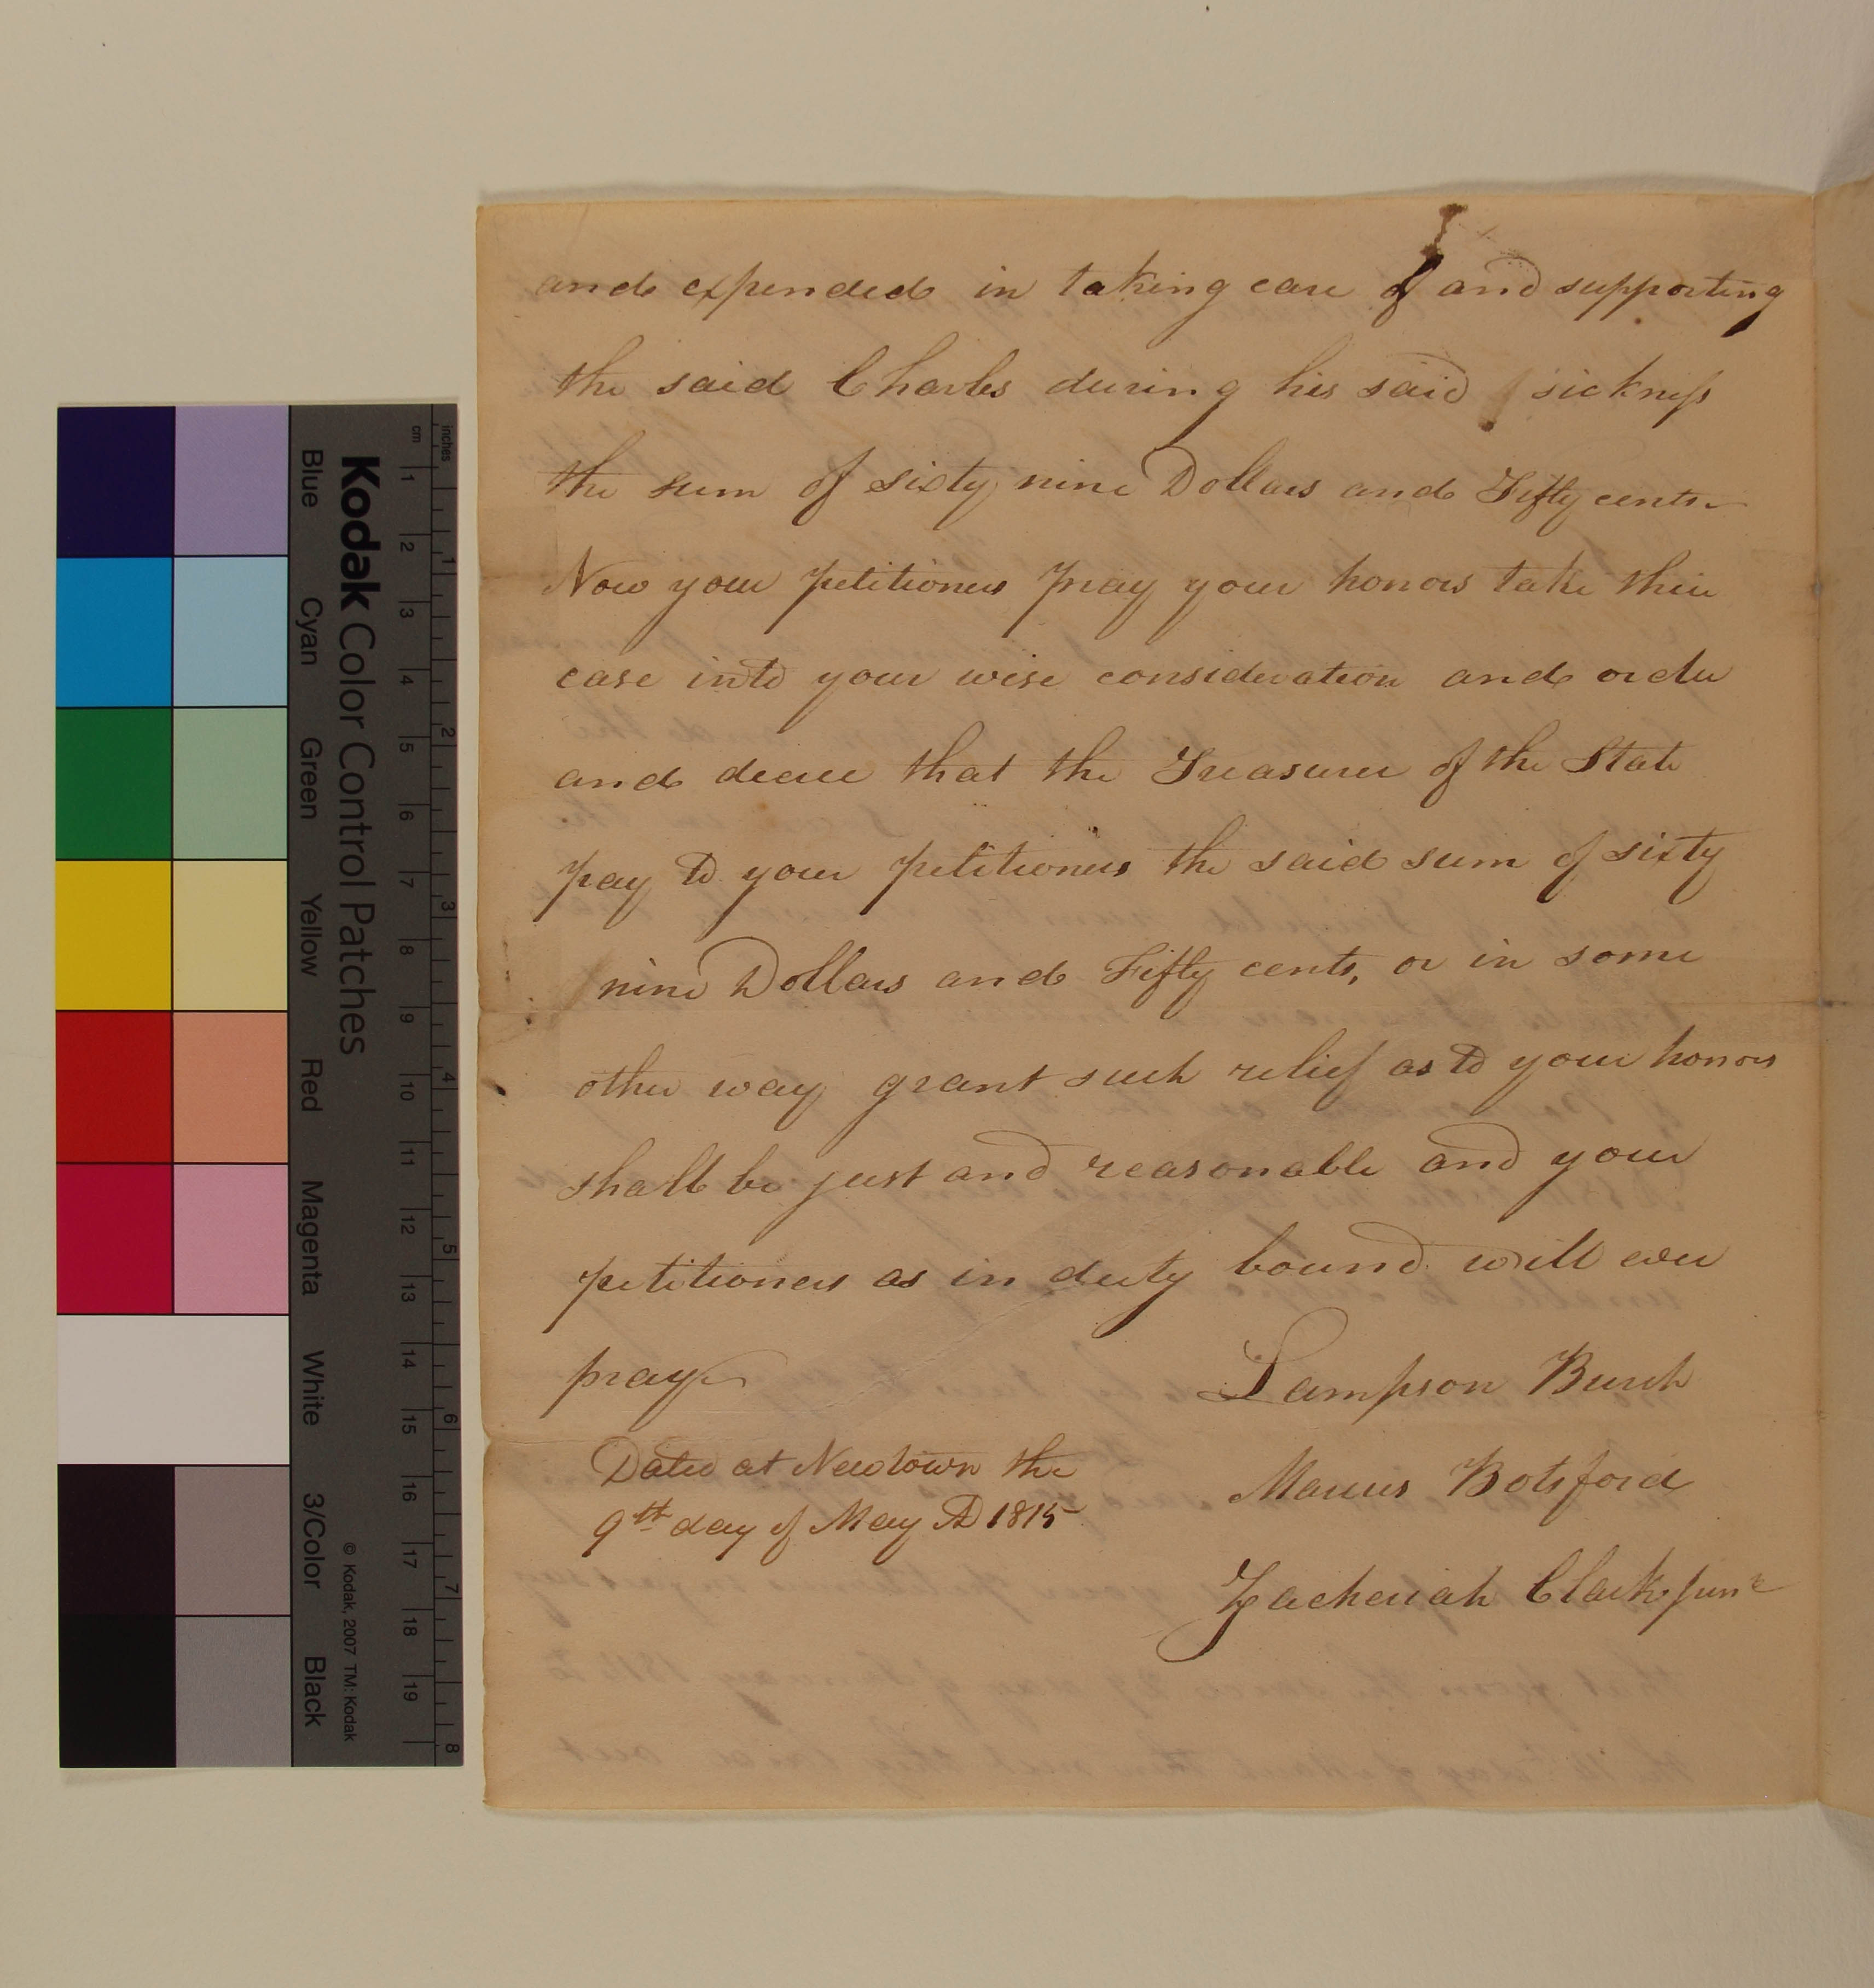 and expended in taking care of and supporting
the said Charles during his said sickness
the sum of sixty nine Dollars and Fifty cents
Now your petitioners pray your honors take their
case into your wise consideration and order
and decree that the Treasurer of the State
pay to your petitioners the said sum of sixty
nine Dollars and Fifty cents, or in some
other way grant such relief as to your honors
shall be just and reasonable and your
petitioners as in duty bound will ever
pray
Lampson Burch
Dated at Newtown the
9th day of May AD 1815
Marcus Botsford
Zacheriah Clark junr
Kodak Color Control Patches
Blue Cyan Green Yellow Red Magenta White 3/Color Black
© Kodak, 2007 TM: Kodak
cm 1 2 3 4 5 6 7 8 9 10 11 12 13 14 15 16 17 18 19
inches 1 2 3 4 5 6 7 8